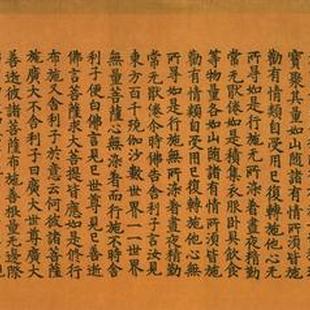 寶聚其量如山隨諸有情所須皆施
勸有情類自受用已復轉施他心无
所㝵如是行施无所染着晝夜精勤
常无猒倦如是積集衣服卧具飲食
等物量各如山隨諸有情所須皆施
勸有情類自受用已復轉施他心無
所㝵如是行施心无染着晝夜精勤
常无猒倦尒時佛告舍利子言汝見
東方百千殑伽沙數世界一一世界
無量菩薩心無染着而行施不時舍
利子便白佛言見已世尊見已善逝
佛言菩薩求大菩提皆應如是修行
布施又舍利子於意云何彼諸菩薩
施廣大不舍利子曰廣大世尊廣大
善逝彼諸菩薩布施善根量无邊際